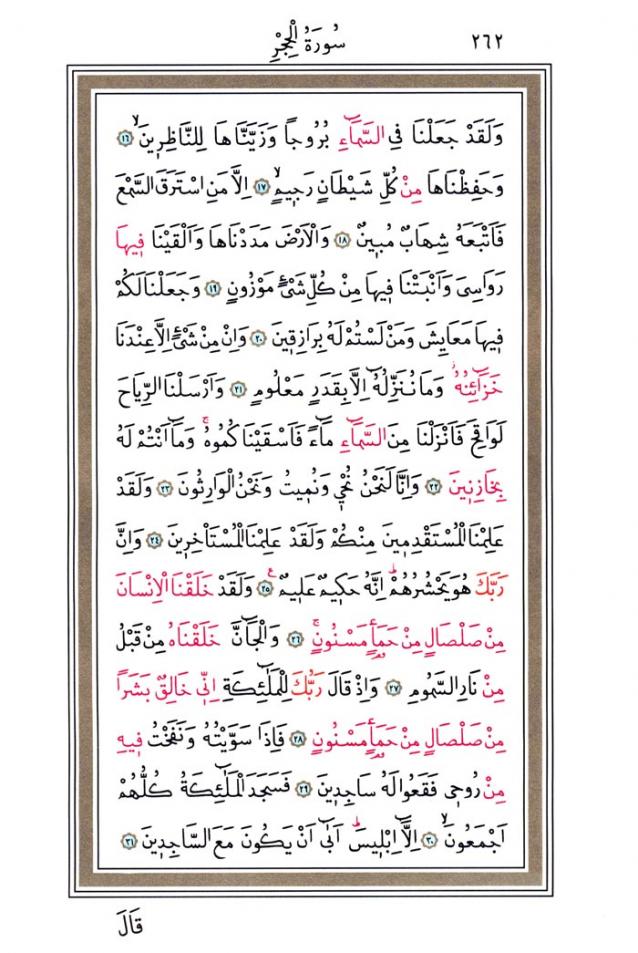 ٢٦٢ سُورَةُ الْحِجْرِ
وَلَقَدْ جَعَلْنَا فِى السَّمَٓاءِ بُرُوجاً وَزَيَّنَّاهَا لِلنَّاظِرٖينَۙ ﴿١٦﴾
وَحَفِظْنَاهَا مِنْ كُلِّ شَيْطَانٍ رَجٖيمٍۙ ﴿١٧﴾ اِلَّا مَنِ اسْتَرَقَ السَّمْعَ
فَاَتْبَعَهُ شِهَابٌ مُبٖينٌ ﴿١٨﴾ وَالْاَرْضَ مَدَدْنَاهَا وَاَلْقَيْنَا فٖيهَا
رَوَاسِىَ وَاَنْبَتْنَا فٖيهَا مِنْ كُلِّ شَىْءٍ مَوْزُونٍ ﴿١٩﴾ وَجَعَلْنَا لَكُمْ
فٖيهَا مَعَايِشَ وَمَنْ لَسْتُمْ لَهُ بِرَازِقٖينَ ﴿٢٠﴾ وَاِنْ مِنْ شَىْءٍ اِلَّا عِنْدَنَا
خَزَٓائِنُهُۘ وَمَا نُنَزِّلُهُٓ اِلَّا بِقَدَرٍ مَعْلُومٍ ﴿٢١﴾ وَاَرْسَلْنَا الرِّيَاحَ
لَوَاقِحَ فَاَنْزَلْنَا مِنَ السَّمَٓاءِ مَٓاءً فَاَسْقَيْنَاكُمُوهُۚ وَمَٓا اَنْتُمْ لَهُ
بِخَازِنٖينَ ﴿٢٢﴾ وَاِنَّا لَنَحْنُ نُحْيٖ وَنُمٖيتُ وَنَحْنُ الْوَارِثُونَ ﴿٢٣﴾ وَلَقَدْ
عَلِمْنَا الْمُسْتَقْدِمٖينَ مِنْكُمْ وَلَقَدْ عَلِمْنَا الْمُسْتَأْخِرٖينَ ﴿٢٤﴾ وَاِنَّ
رَبَّكَ هُوَ يَحْشُرُهُمْؕ اِنَّهُ حَكٖيمٌ عَلٖيمٌ ﴿٢٥﴾ وَلَقَدْ خَلَقْنَا الْاِنْسَانَ
مِنْ صَلْصَالٍ مِنْ حَمَأٍ مَسْنُونٍۚ ﴿٢٦﴾ وَالْجَٓانَّ خَلَقْنَاهُ مِنْ قَبْلُ
مِنْ نَارِ السَّمُومِ ﴿٢٧﴾ وَاِذْ قَالَ رَبُّكَ لِلْمَلٰٓئِكَةِ اِنّٖى خَالِقٌ بَشَراً
مِنْ صَلْصَالٍ مِنْ حَمَأٍ مَسْنُونٍ ﴿٢٨﴾ فَاِذَا سَوَّيْتُهُ وَنَفَخْتُ فٖيهِ
مِنْ رُوحٖى فَقَعُوا لَهُ سَاجِدٖينَ ﴿٢٩﴾ فَسَجَدَ الْمَلٰٓئِكَةُ كُلُّهُمْ
اَجْمَعُونَۙ ﴿٣٠﴾ اِلَّٓا اِبْلٖيسَؕ اَبٰٓى اَنْ يَكُونَ مَعَ السَّاجِدٖينَ ﴿٣١﴾
قَالَ